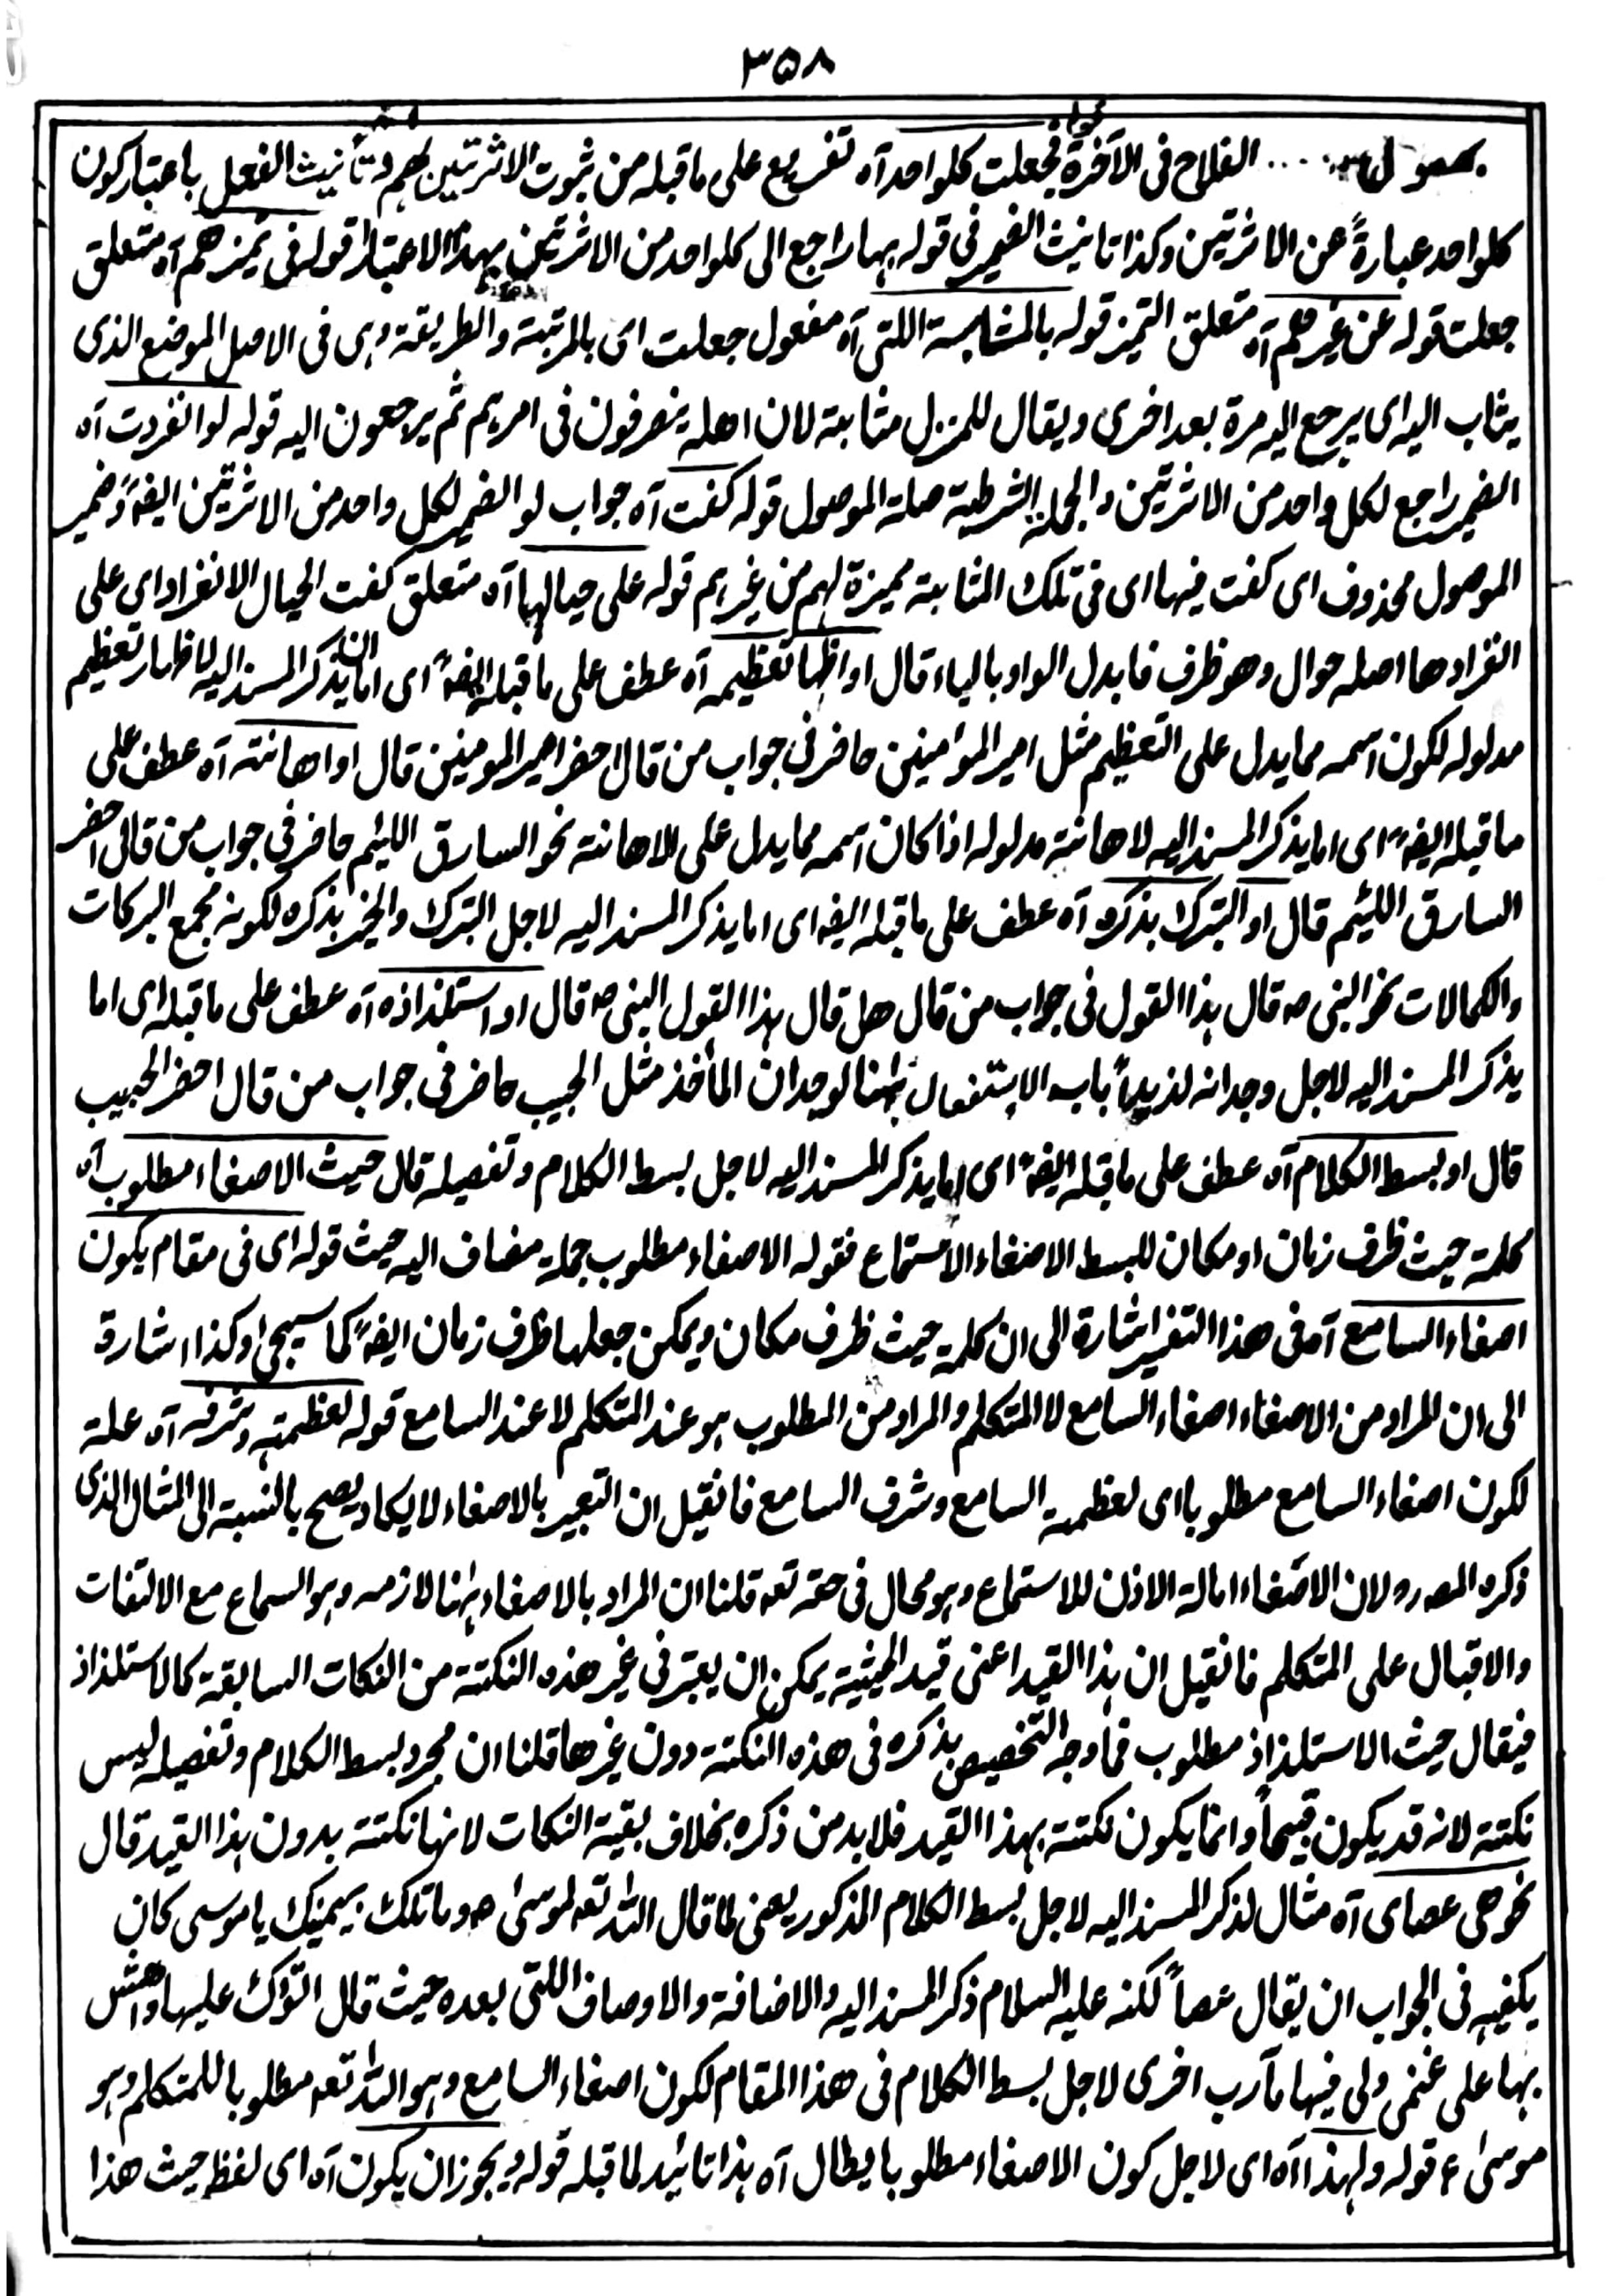 ۳۵۸
الفلاح فى الآخرة قوله فجعلت كلواحد آه تفريع على ما قبله من ثبوت الاثرتين لهم وتأنيث الفعل باعتبار كون
كلواحد عبارةً عن الاثرتين وكذا تانيث الضمير فى قوله بها راجع الى كلواحد من الاثرتين بهذا الاعتبار قوله فى تميزهم آه متعلق
جعلت قوله عن غيرهم آه متعلق التميز قوله بالمثابة اللتى آه مفعول جعلت اى بالمرتبة والطريقة وهى فى الاصل الموضع الذى
يثاب اليه اى يرجع اليه مرة بعد اخرى ويقال للمنزل مثابة لان اهله ينصرفون فى امرهم ثم يرجعون اليه قوله لو انفردت آه
الضمير راجع لكل واحد من الاثرتين والجملة الشرطية صلة الموصول قوله كفت آه جواب لو الضمير لكل واحد من الاثرتين ايضًا وضمير
الموصول محذوف اى كفت فيها اى فى تلك المثابة مميزة لهم من غيرهم قوله على حيالها آه متعلق كفت الحيال الانفراد اي على
انفرادها اصله حوال وهو ظرف فابدل الواو بالياء قال او اظهار تعظيمه آه عطف على ما قبله ايضًا اى اما ان يذكر المسند اليه لاظهار تعظيم
مدلوله لكون اسمه مما يدل على التعظيم مثل امير المؤمنين حاضر فى جواب من قال احضر امير المومنين قال او اهانته آه عطف على
ما قبله ايضًا اى اما يذكر المسند اليه لاهانته مدلوله اذا كان اسمه مما يدل على الاهانة نحو السارق اللئيم حاضر فى جواب من قال احضر
السارق اللئيم قال او التبرك بذكره آه عطف على ما قبله ايضا اى اما يذكر المسند اليه لاجل التبرك والخير بذكره لكونه مجمع البركات
والكمالات نحو النبى ص قال هذا القول فى جواب من قال هل قال هذا القول النبى ص قال او استلذاذه آه عطف على ما قبله اى اما
يذكر المسند اليه لاجل وجدانه لذيدًا باب الاستفعال ههنا لوجدان المأخذ مثل الحبيب حاضر فى جواب من قال احضر الحبيب
قال او بسط الكلام آه عطف على ما قبله ايضًا اى اما يذكر المسند اليه لاجل بسط الكلام وتفصيله قال حيث الاصغاء مطلوب آه
كلمة حيث ظرف زمان او مكان للبسط الاصغاء الاستماع فقوله الاصغاء مطلوب جملة مضاف اليه حيث قوله اى فى مقام يكون
اصغاء السامع آه فى هذا التفسير اشارة الى ان كلمة حيث ظرف مكان ويمكن جعلها ظرف زمان ايضًا كما سيجئ وكذا اشارة
الى ان المراد من الاصغاء اصغاء السامع لا المتكلم والمراد من المطلوب هو عند المتكلم لا عند السامع قوله لعظمته وشرفه آه علة
لكون اصغاء السامع مطلوبا اى لعظمة السامع وشرف السامع فانقيل ان التعبير بالاصغاء لا يكاد يصح بالنسبة الى المثال الذى
ذكره المصرو لان الاصغاء امالة الاذن للاستماع وهو محال فى حقه تعه قلنا ان المراد بالاصغاء ههنا لازمه وهو السماع مع الالتفات
والاقبال على المتكلم فانقيل ان هذا القيد اعنى قيد الحيثية يمكن ان يعتبر فى غير هذه النكتة من النكات السابقة كالاستلذاذ
فيقال حيث الاستلذاذ مطلوب فما وجه التخصيص بذكره فى هذه النكتة دون غيرها قلنا ان مجرد بسط الكلام وتفصيله ليس
نكتة لانه قد يكون قبيحاً وانما يكون نكتة بهذا القيد فلابد من ذكره بخلاف بقية النكات لانها نكتة بدون هذا القيد قال
نحو هى عصاى آه مثال لذكر المسند اليه لاجل بسط الكلام المذكور يعنى لما قال الله تعه لموسىٰ ص وما تلك بيمينك يا موسى كان
يكفيه فى الجواب ان يقال عصاً لكنه عليه السلام ذكر المسند اليه والاضافة والاوصاف اللتى بعده حيث قال اتوكؤ عليها واهش
بها على غنمى ولى فيها مآرب اخرى لاجل بسط الكلام فى هذا المقام لكون اصغاء السامع وهو الله تعه مطلوبا للمتكلم وهو
موسىٰ ع قوله ولهذا آه اى لاجل كون الاصغاء مطلوبا يطال آه هذا تائيد لما قبله قوله ويجوز ان يكون آه اى لفظ حيث هذا